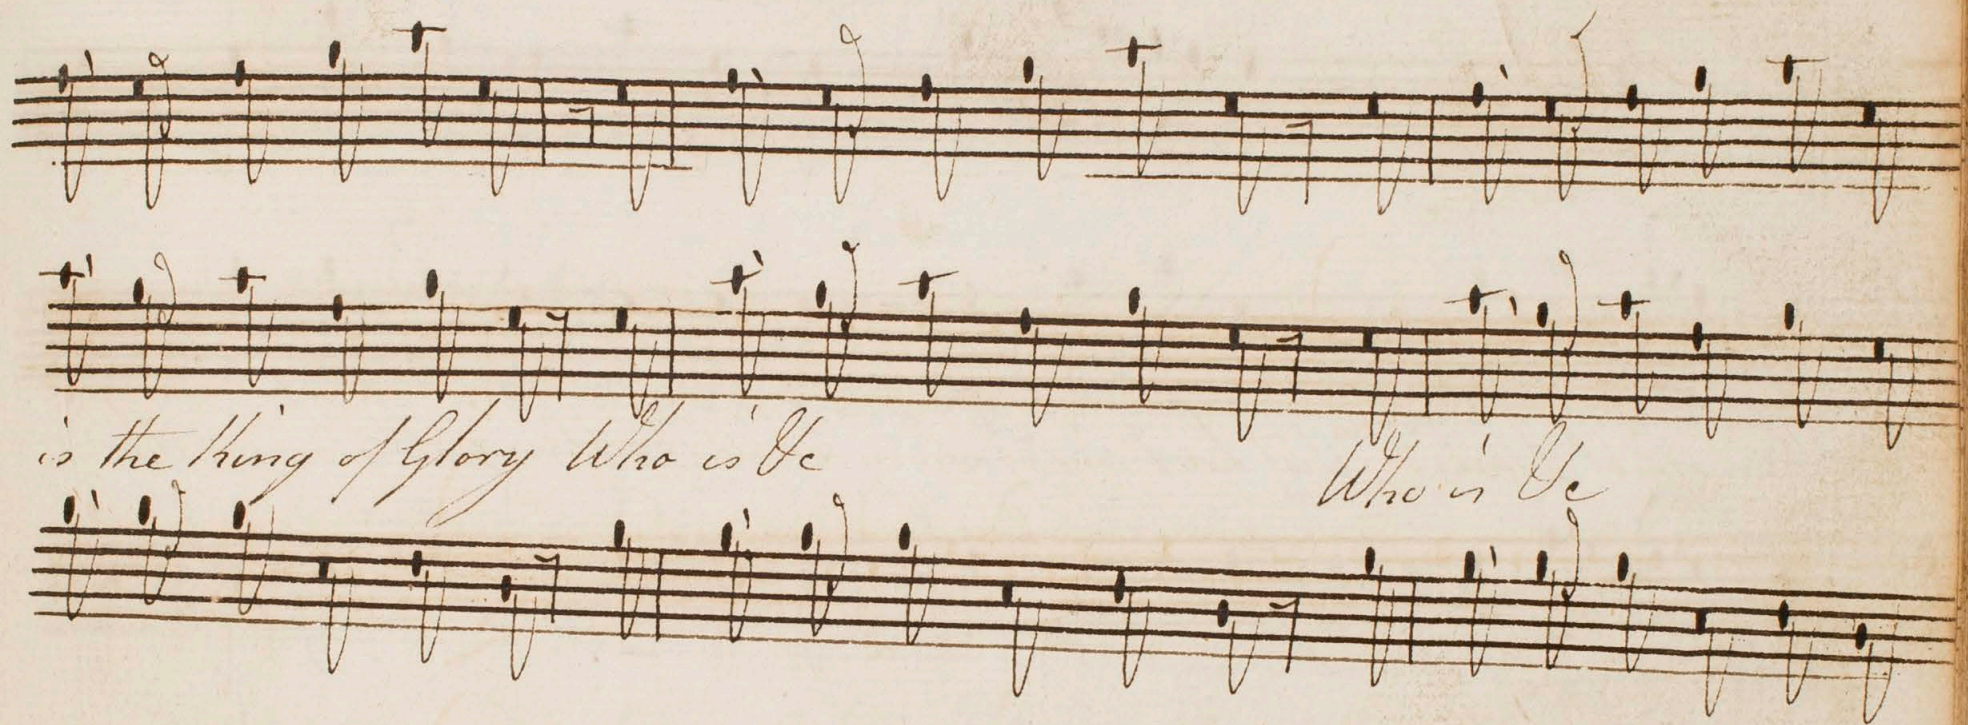 is the King of Glory Who is &c
Who is &c